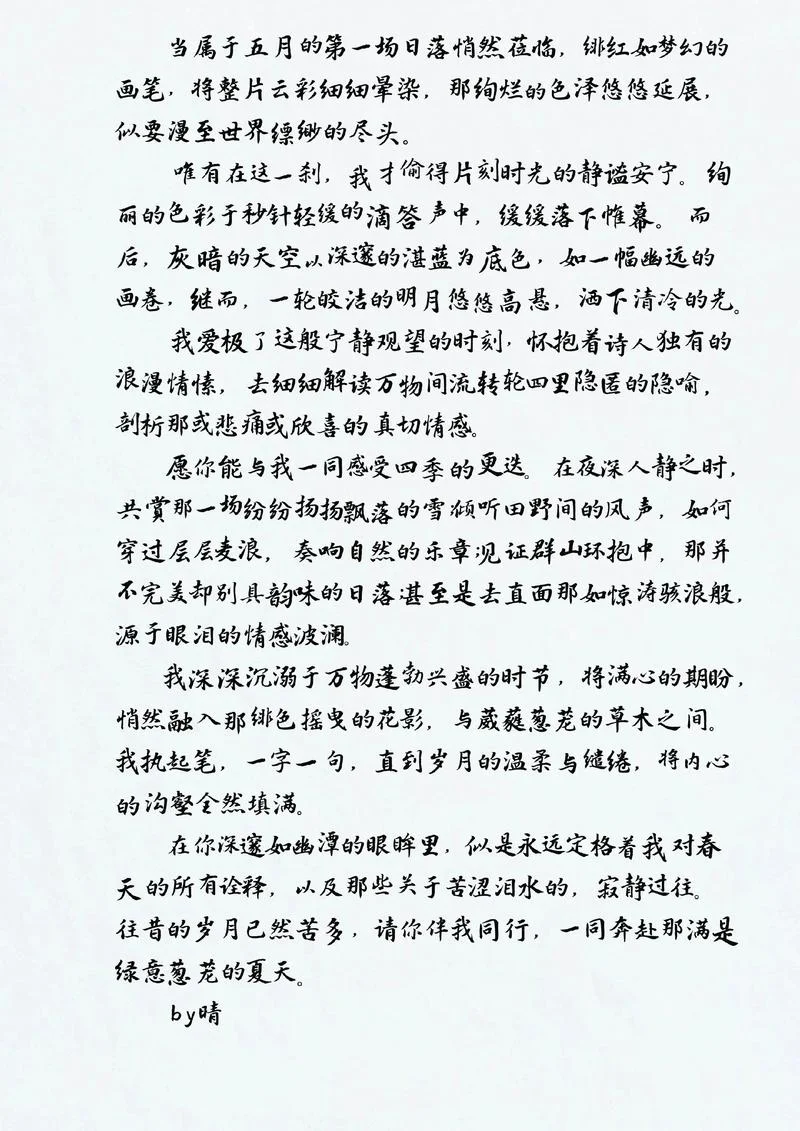 当属于五月的第一场日落悄然莅临，绯红如梦幻的
画笔，将整片云彩细细晕染，那绚烂的色泽悠悠延展，
似要漫至世界缥缈的尽头。
唯有在这一刹，我才偷得片刻时光的静谧安宁。绚
丽的色彩于秒针轻缓的滴答声中，缓缓落下帷幕。而
后，灰暗的天空以深邃的湛蓝为底色，如一幅幽远的
画卷，继而，一轮皎洁的明月悠悠高悬，洒下清冷的光。
我爱极了这般宁静观望的时刻，怀抱着诗人独有的
浪漫情愫，去细细解读万物间流转轮四里隐匿的隐喻，
剖析那或悲痛或欣喜的真切情感。
愿你能与我一同感受四季的更迭。在夜深人静之时，
共赏那一场纷纷扬扬飘落的雪;倾听田野间的风声，如何
穿过层层麦浪，奏响自然的乐章;见证群山环抱中，那并
不完美却别具韵味的日落;甚至是去直面那如惊涛骇浪般，
源于眼泪的情感波澜。
我深深沉溺于万物蓬勃兴盛的时节，将满心的期盼，
悄然融入那绯色摇曳的花影，与葳蕤葱茏的草木之间。
我执起笔，一字一句，直到岁月的温柔与缱绻，将内心
的沟壑全然填满。
在你深邃如幽潭的眼眸里，似是永远定格着我对春
天的所有诠释，以及那些关于苦涩泪水的，寂静过往。
往昔的岁月已然苦多，请你伴我同行，一同奔赴那满是
绿意葱茏的夏天。
by晴